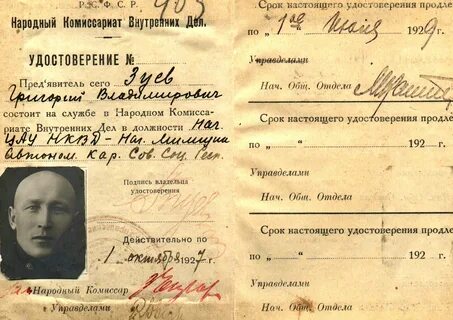 Р.С.Ф.С.Р.
Народный Комиссариат Внутренних Дел.
УДОСТОВЕРЕНИЕ №
Пред'явитель сего Зуев
Григорий Владимирович
состоит на службе в Народном Комисса-
риате Внутренних Дел в должности Нач.
ЦАУ НКВД - Нач. Милиции
Автоном. Кар. Сов. Соц. Респ.
Подпись владельца
удостоверения
Действительно по
1 октября 1927 г.
Народный Комиссар
Управделами
Срок настоящего удостоверения продле
по 1ое Июля 1929 г.
Управделами
Нач. Общ. Отдела
Срок настоящего удостоверения продле
по 192 г.
Управделами
Нач. Общ. Отдела
Срок настоящего удостоверения продле
по 192 г.
Управделами
Нач. Общ. Отдела